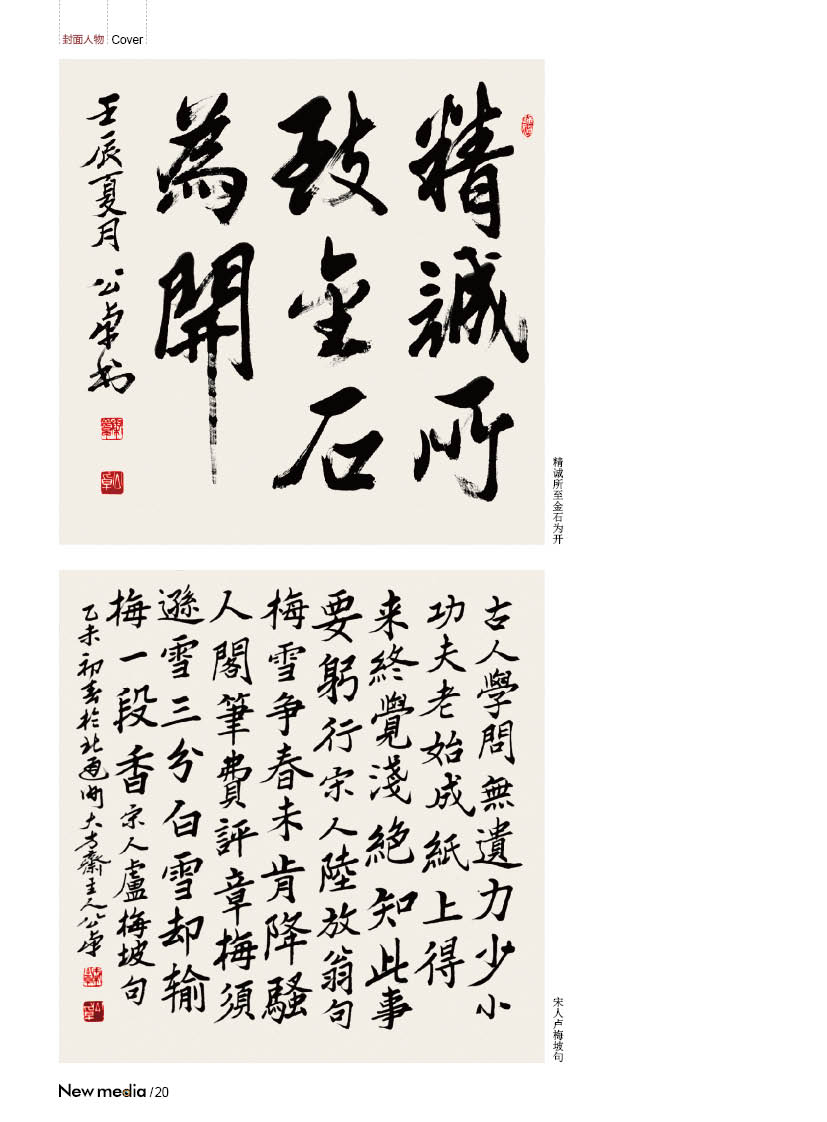 封面人物 Cover
精誠所
致金石
為開
壬辰夏月 公卓书
精诚所至金石为开
古人學問無遺力少小
功夫老始成紙上得
来終覺淺絶知此事
要躬行宋人陸放翁句
梅雪争春未肯降騷
人閣筆費評章梅須
遜雪三分白雪却输
梅一段香宋人盧梅坡句
乙未初春於北通州大方齋主人公卓
宋人卢梅坡句
New media /20